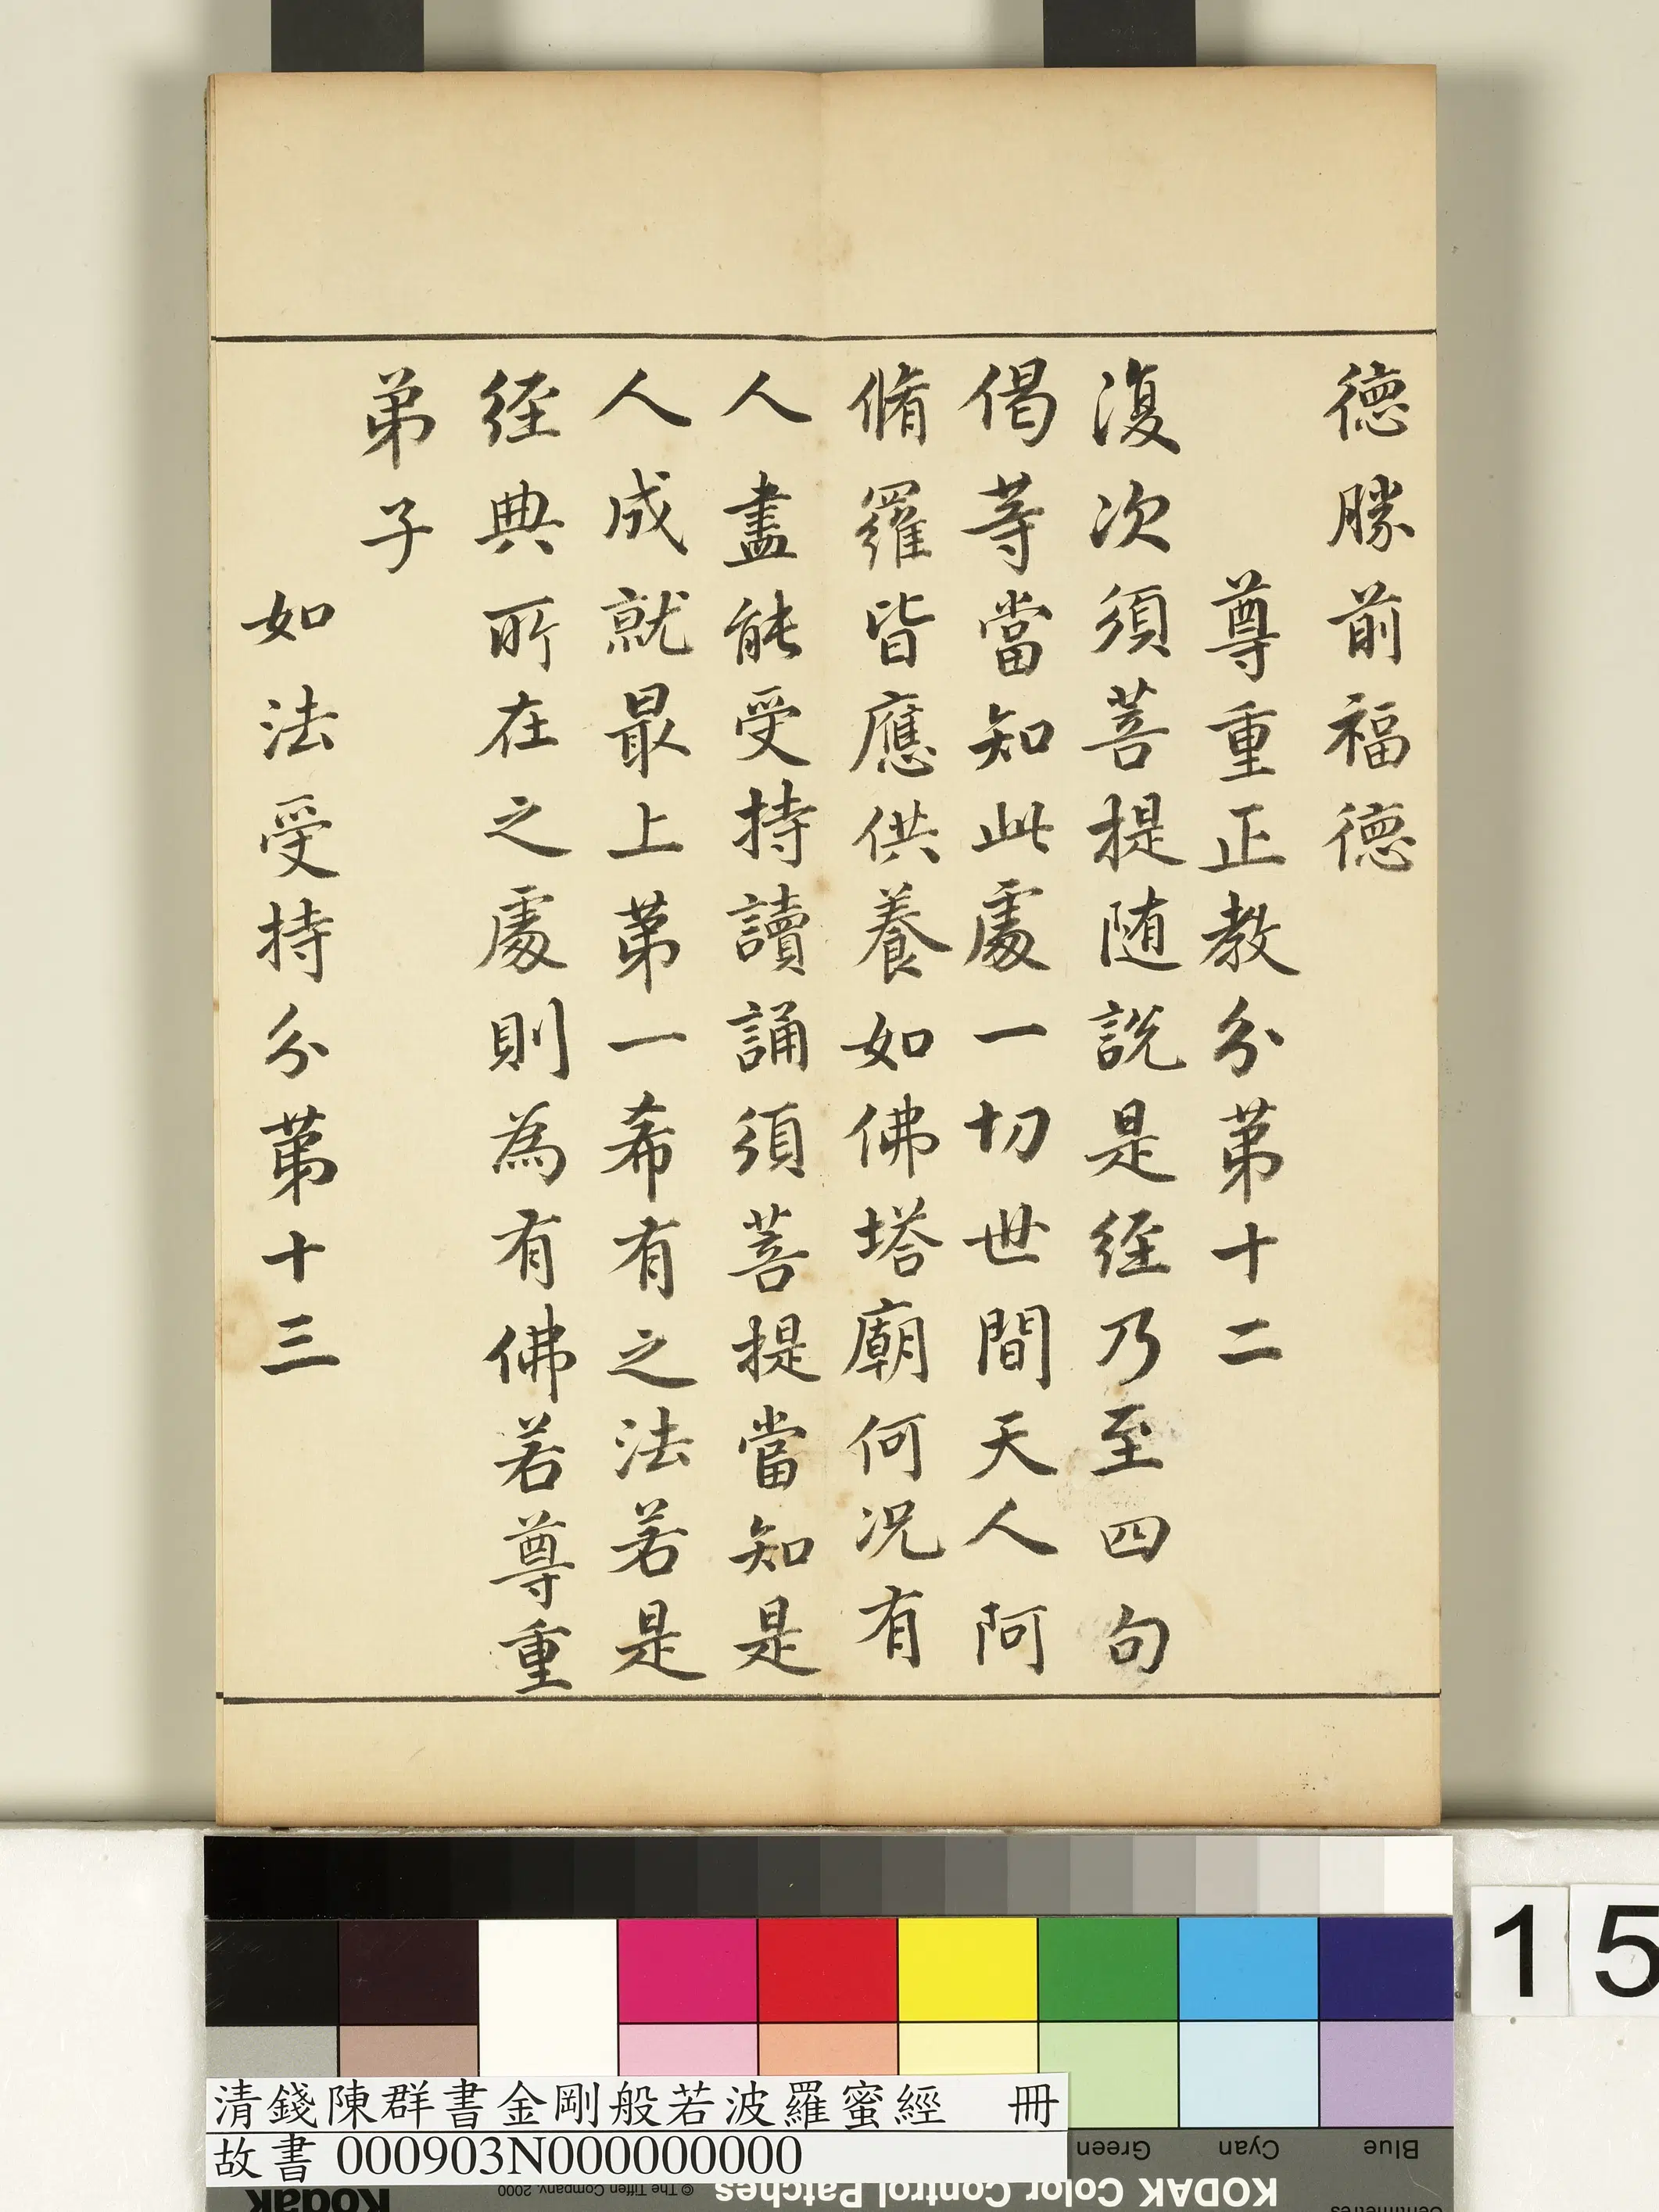 德勝前福德
尊重正教分第十二
復次須菩提随說是經乃至四句
偈等當知此處一切世間天人阿
脩羅皆應供養如佛塔廟何况有
人盡能受持讀誦須菩提當知是
人成就最上第一希有之法若是
經典所在之處則為有佛若尊重
弟子
如法受持分第十三
15
清錢陳群書金剛般若波羅蜜經 冊
故書 000903N000000000
Green
Cyan
Blue
Kodak
© The Tiffen Company, 2000
KODAK Color Control Patches
Centimetres